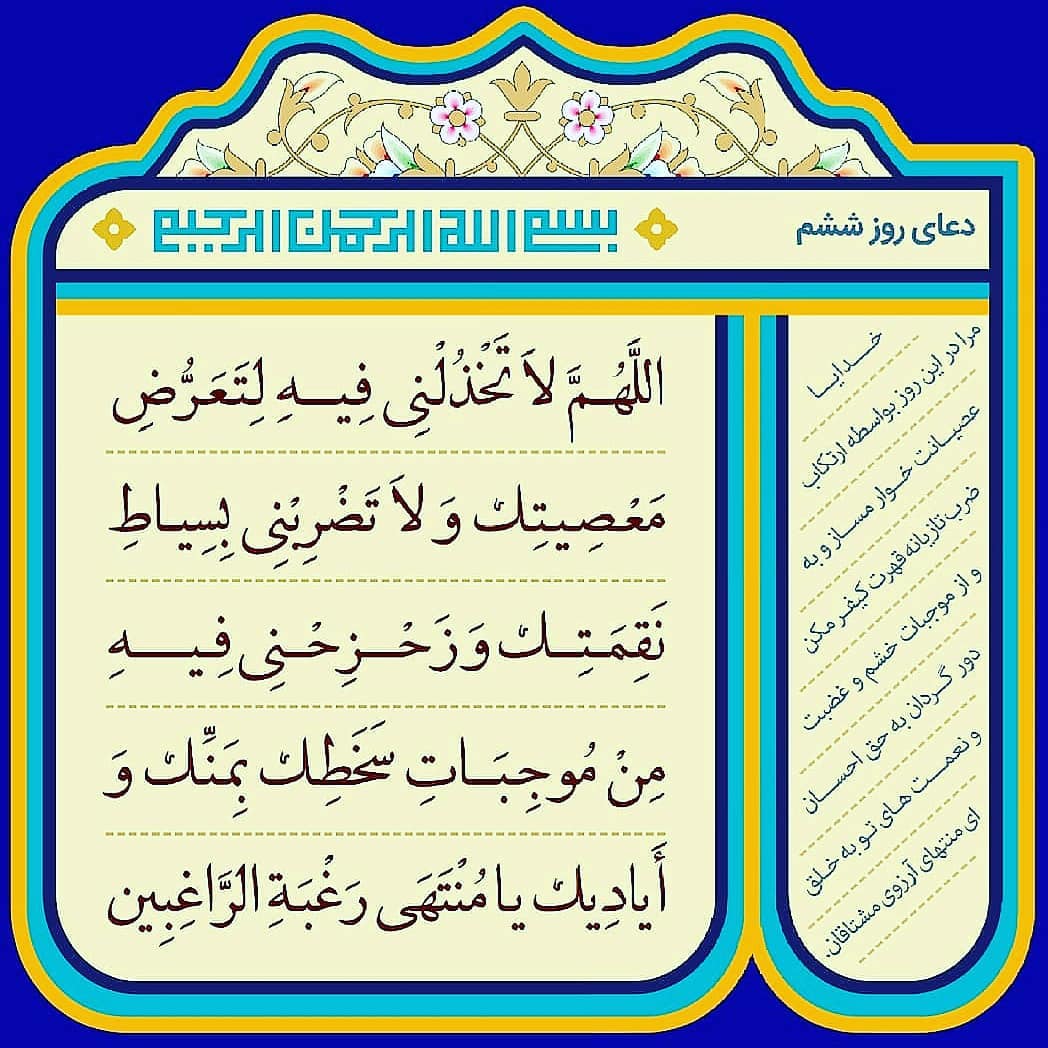 دعای روز ششم
بسم الله الرحمن الرحیم
اللَّهُمَّ لاَ تَخْذُلْنِی فِیهِ لِتَعَرُّضِ
مَعْصِیتِک وَ لاَ تَضْرِبْنِی بِسِیاطِ
نَقِمَتِک وَ زَحْزِحْنِی فِیهِ
مِنْ مُوجِبَاتِ سَخَطِک بِمَنِّک وَ
أَیادِیک یا مُنْتَهَی رَغْبَةِ الرَّاغِبِین
خدایا
مرا در این روز بواسطه ارتکاب
عصیانت خوار مساز و به
ضرب تازیانه قهرت کیفر مکن
و از موجبات خشم و غضبت
دور گردان به حق احسان
و نعمت های تو به خلق
ای منتهای آرزوی مشتاقان.